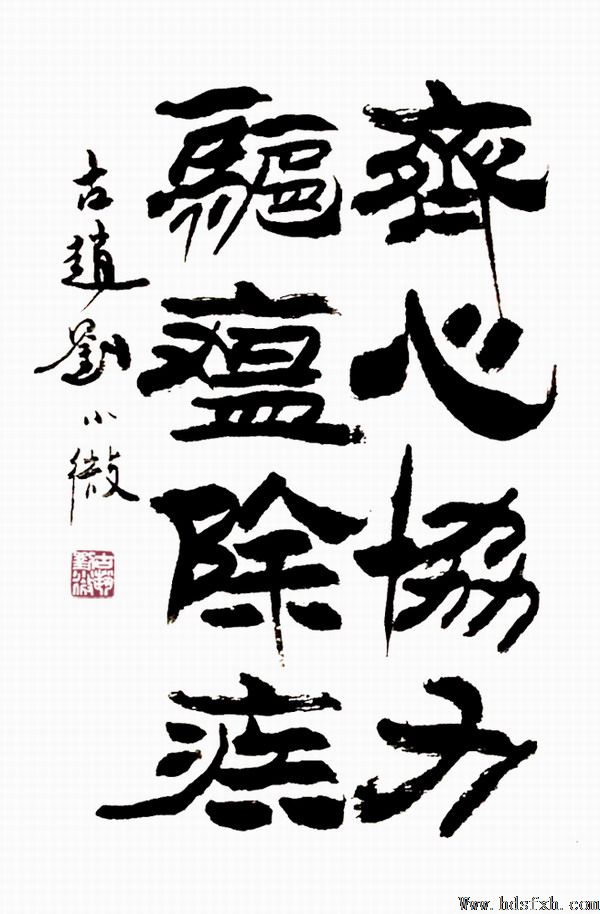 齊心協力
驅瘟除疾
古趙劉小微
Www.hdsfxh.com